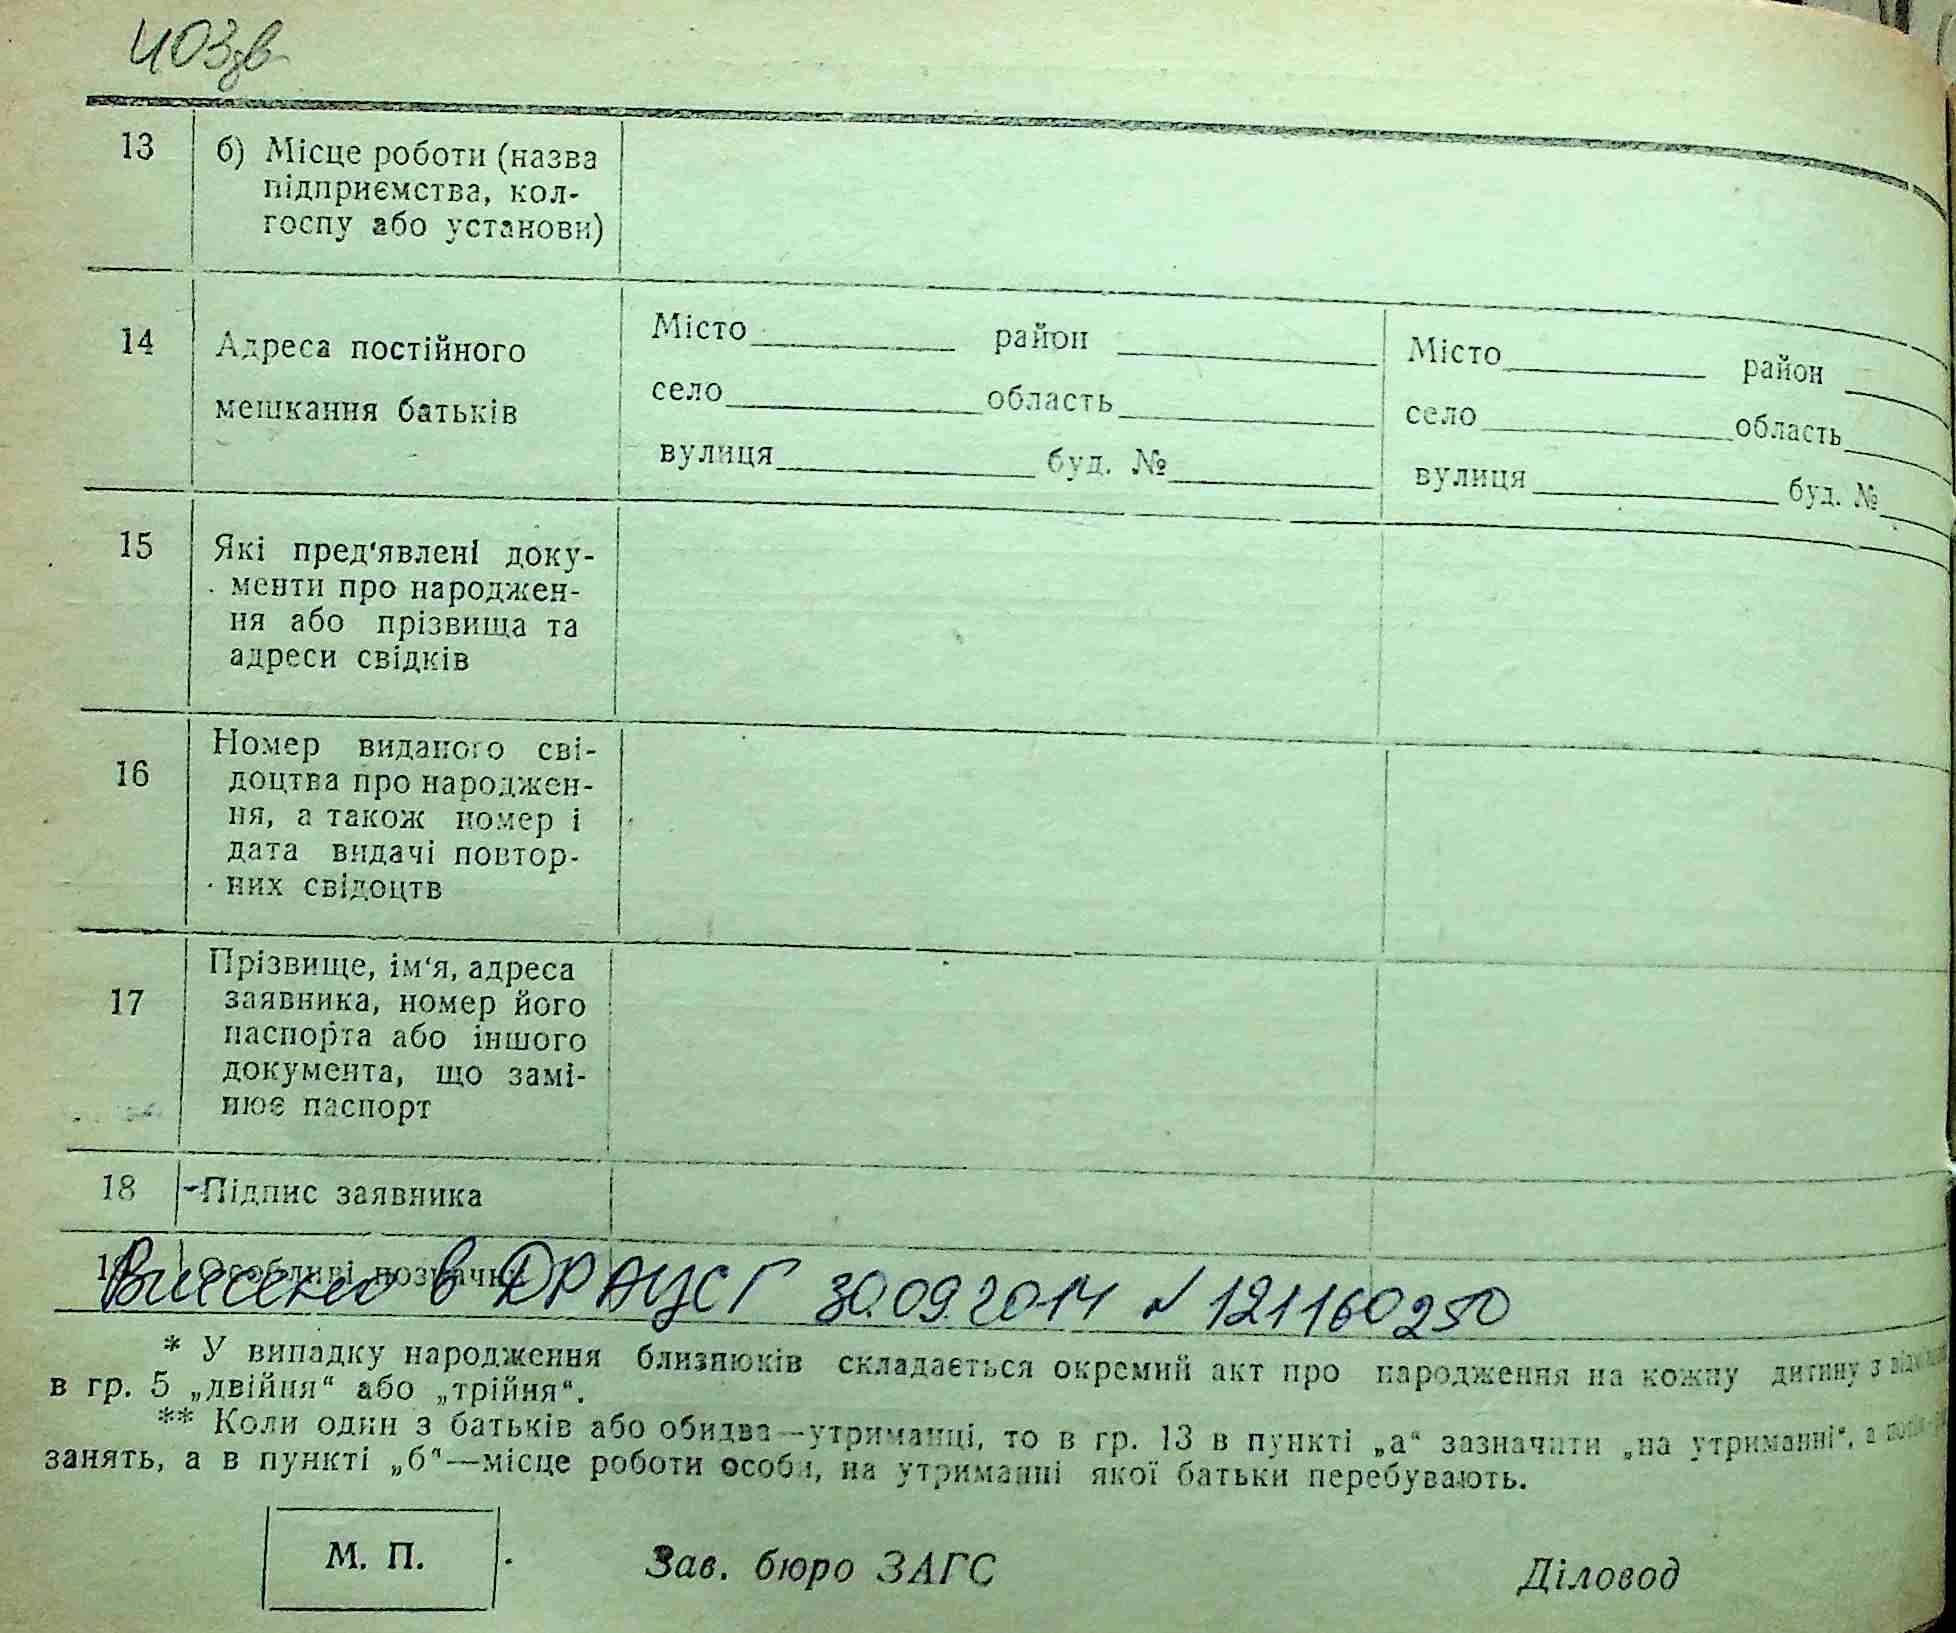 403зв
13 б) Місце роботи (назва
підприємства, кол-
госпу або установи)
14 Адреса постійного
мешкання батьків
Місто район
село область
вулиця буд. №
Місто район
село область
вулиця буд. №
15 Які пред'явлені доку-
менти про народжен-
ня або прізвища та
адреси свідків
16 Номер виданого сві-
доцтва про народжен-
ня, а також номер і
дата видачі повтор-
них свідоцтв
17 Прізвище, ім'я, адреса
заявника, номер його
паспорта або іншого
документа, що замі-
нює паспорт
18 Підпис заявника
Особливі позначки
Внесено в ДРАЦСГ 30.09.2014 N 121160250
* У випадку народження близнюків складається окремий акт про народження на кожну дитину з
в гр. 5 „двійня“ або „трійня“.
** Коли один з батьків або обидва—утриманці, то в гр. 13 в пункті „а“ зазначити „на утриманні“, а
занять, а в пункті „б“—місце роботи особи, на утриманні якої батьки перебувають.
М. П.
Зав. бюро ЗАГС
Діловод